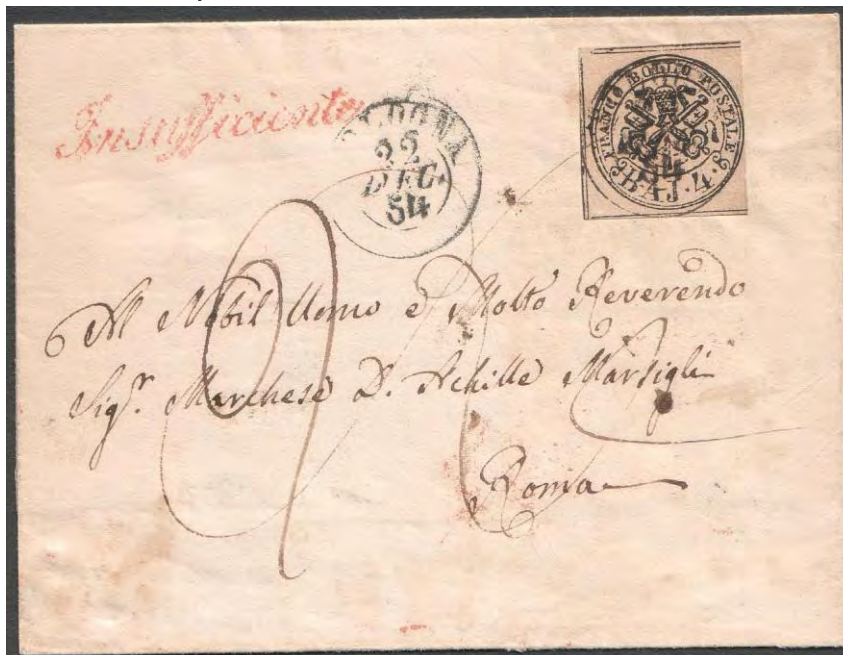 Insufficiente
BOLOGNA
22
DEC
54
FRANCO BOLLO POSTALE
BAJ. 4.
54
Al Nobil Uomo e Molto Reverendo
Sigr. Marchese D. Achille Marsigli
Roma